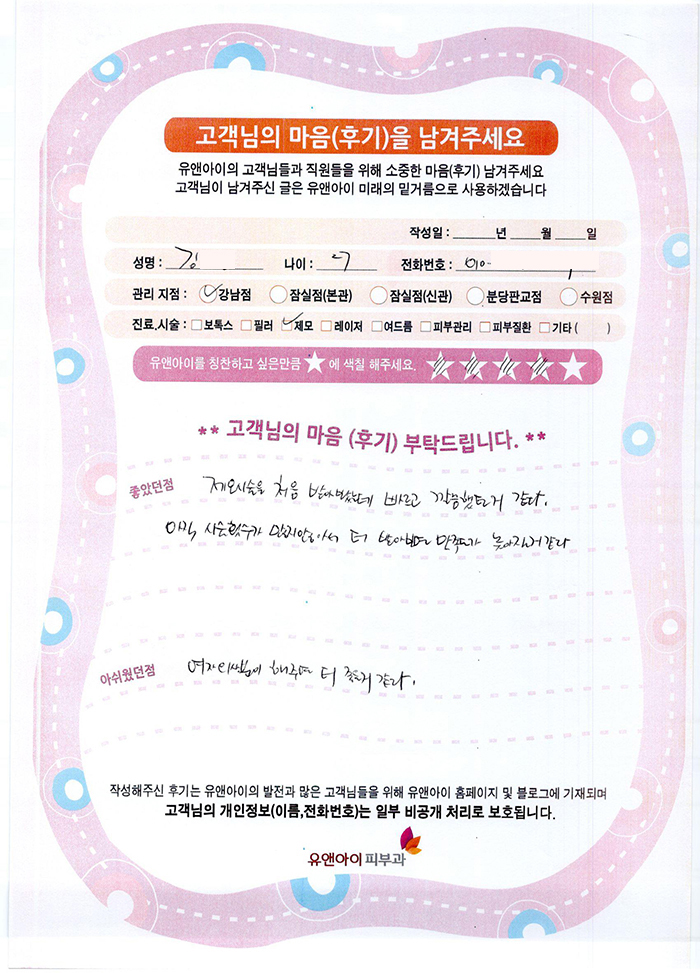 고객님의 마음(후기)을 남겨주세요
유앤아이의 고객님들과 직원들을 위해 소중한 마음(후기) 남겨주세요
고객님이 남겨주신 글은 유앤아이 미래의 밑거름으로 사용하겠습니다
작성일 : 년 월 일
성명 : 김 나이 : 전화번호 : 010
관리 지점 : 강남점 잠실점(본관) 잠실점(신관) 분당판교점 수원점
진료.시술 : 보톡스 필러 제모 레이저 여드름 피부관리 피부질환 기타 ( )
유앤아이를 칭찬하고 싶은만큼 ★ 에 색칠 해주세요.
** 고객님의 마음 (후기) 부탁드립니다. **
좋았던점 제모시술을 처음 받아봤는데 빠르고 깔끔했던거 같다.
아직 시술횟수가 많지않아서 더 받아보면 만족도가 높아질거같다
아쉬웠던점 여자의사쌤이 해주면 더 좋을거 같다.
작성해주신 후기는 유앤아이의 발전과 많은 고객님들을 위해 유앤아이 홈페이지 및 블로그에 기재되며
고객님의 개인정보(이름,전화번호)는 일부 비공개 처리로 보호됩니다.
유앤아이 피부과